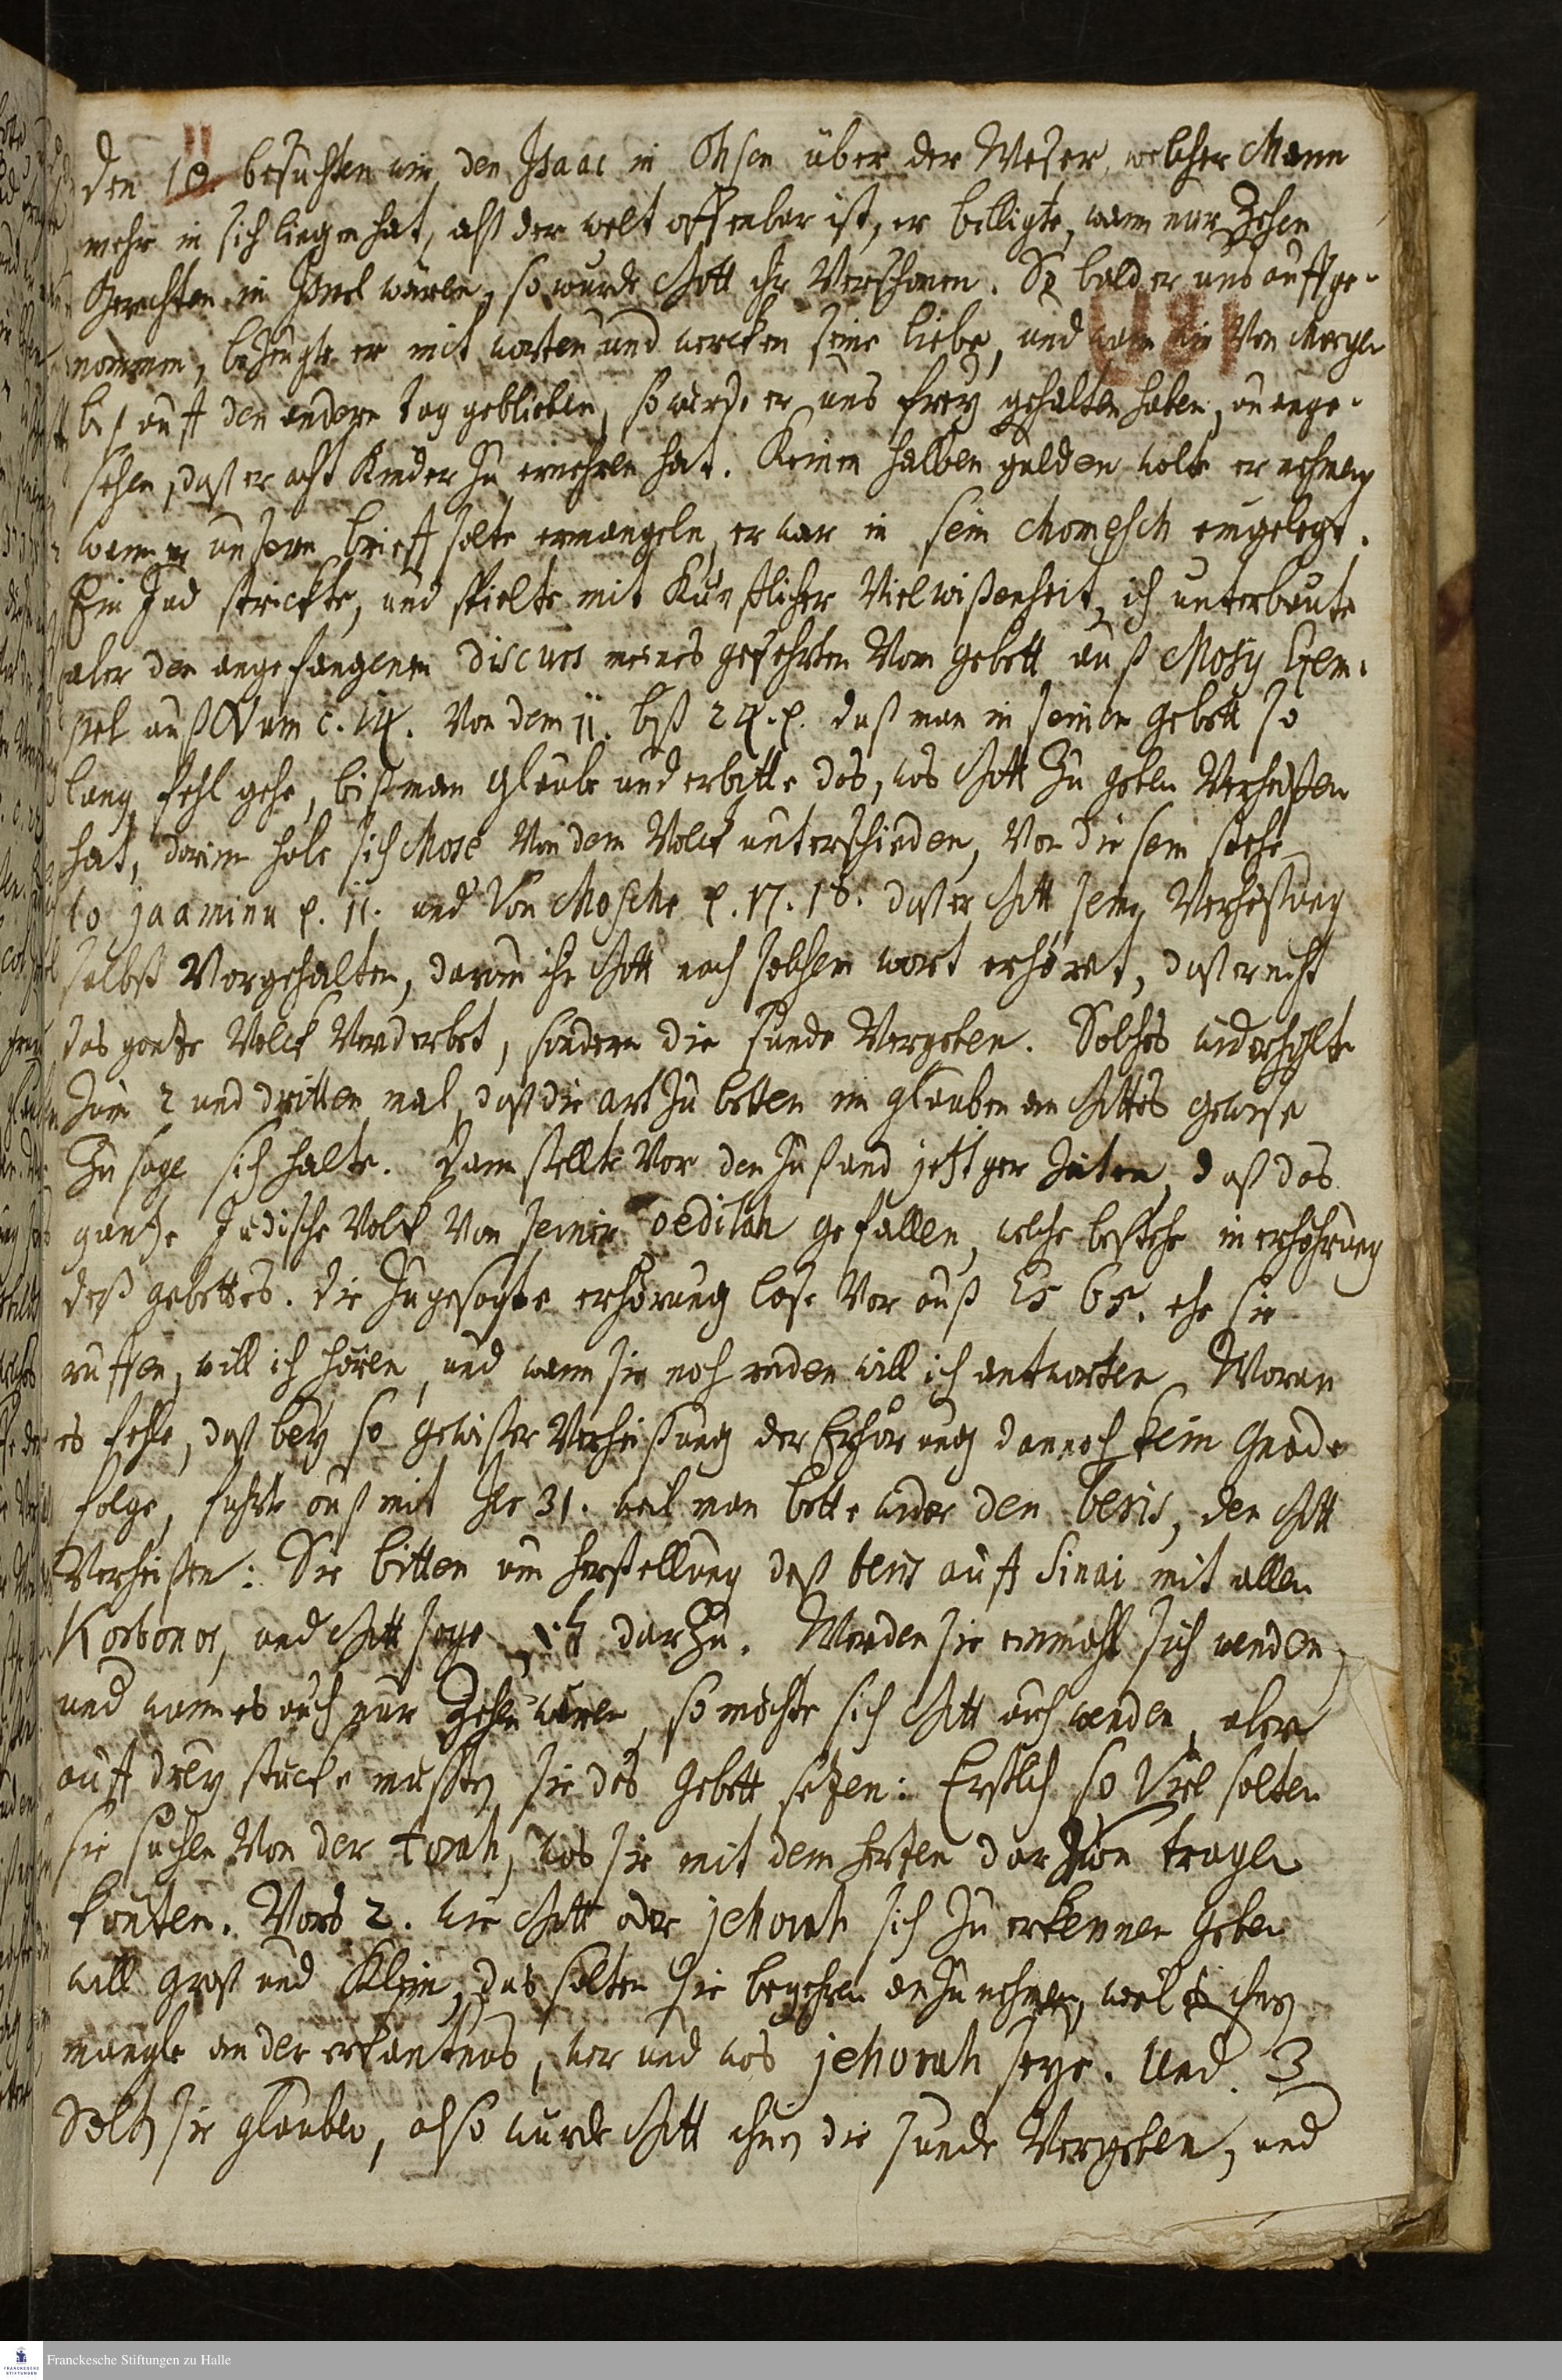 11
den 10. besuchten wir den Isaac in Ohsen über der Weser, welcher Mann
mehr in sich liegen hat, alß der welt offenbar ist, er billigte, wann nur Zehen
Gerechten in Israel wären, so wurde Gott ihr Verschonen. So bald er uns auffge-
nommen, bezeugte er mit worten und wercken seine liebe, und wann wir Von Morgen
biß auff den andern tag geblieben, so würde er uns frey gehalten haben, unange-
sehen, daß er acht Kinder zu ernehren hat. Keinen halben gulden wolte er nehmen
wann er unsern brieff solte ermangeln, er war in sein Chomesch eingelegt.
Ein Jud strickte, und spielte mit Künstlicher Vielwißenheit, ich unterbaute
aber den angefangenen discurs meines gefehrten Vom gebett auß Mosis Exem-
pel auß Num c. 14. Von dem 11. biß 24. daß man in seinem gebett so
lang fehl gehe, biß man glaube und erbitte das, was Gott zu geben Verheißen
hat, darinn habe sich Mose Von dem Volck unterschieden, Von diesem stehe
lo jaaminu 11. und Von Mosche 17. 18. daß er Gott seine Verheißung
selbst Vorgehalten, darum ihn Gott nach solchem wort erhöret, daß er nicht
das gantze Volck Verderbet, sondern die sunde Vergeben. Solches widerholte
zum 2 und dritten mal, daß die art zu betten im glauben an Gottes gewise
Zusage sich halte. Dann stellte Vor den Zustand jetztger Zeiten, daß das
gantze Jüdische Volck Von seiner Gedilah gefallen, welche bestehe in erhöhrung
deß gebettes. die Zugesagte erhörung lase Vor auß Es 65. ehe sie
ruffen, will ich hören, und wann sie noch reden will ich antworten. Woran
es fehle, daß bey so gewißer Verheißung der Erhörung dannoch kein Gnade
folge, fuhrte auß mit Jer 31. weil man bette wider den beris, den Gott
Verheißen: Sie bitten um herstellung deß beris auff Sinai mit allen
Korbonos, und Gott sage darzu. Werden sie einmahl sich wenden,
und wann es auch nur Zehen wären, so möchte sich Gott auch wenden, aber
auff drey stucke mußten sie das Gebett setzen: Erstlich so Viel solten
sie suchen Von der torah, was sie mit dem hertzen darVon tragen
konten. Vors 2. wie Gott oder jehovah sich zu erkennen geben
will groß und Klein, das solten sie begehren anzunehmen, weil es ihnen
mangle an der erkantnus, wer und was jehovah seye. Und 3
Solten sie glauben, also wurde Gott ihnen die sunde Vergeben, und
Franckesche Stiftungen zu Halle